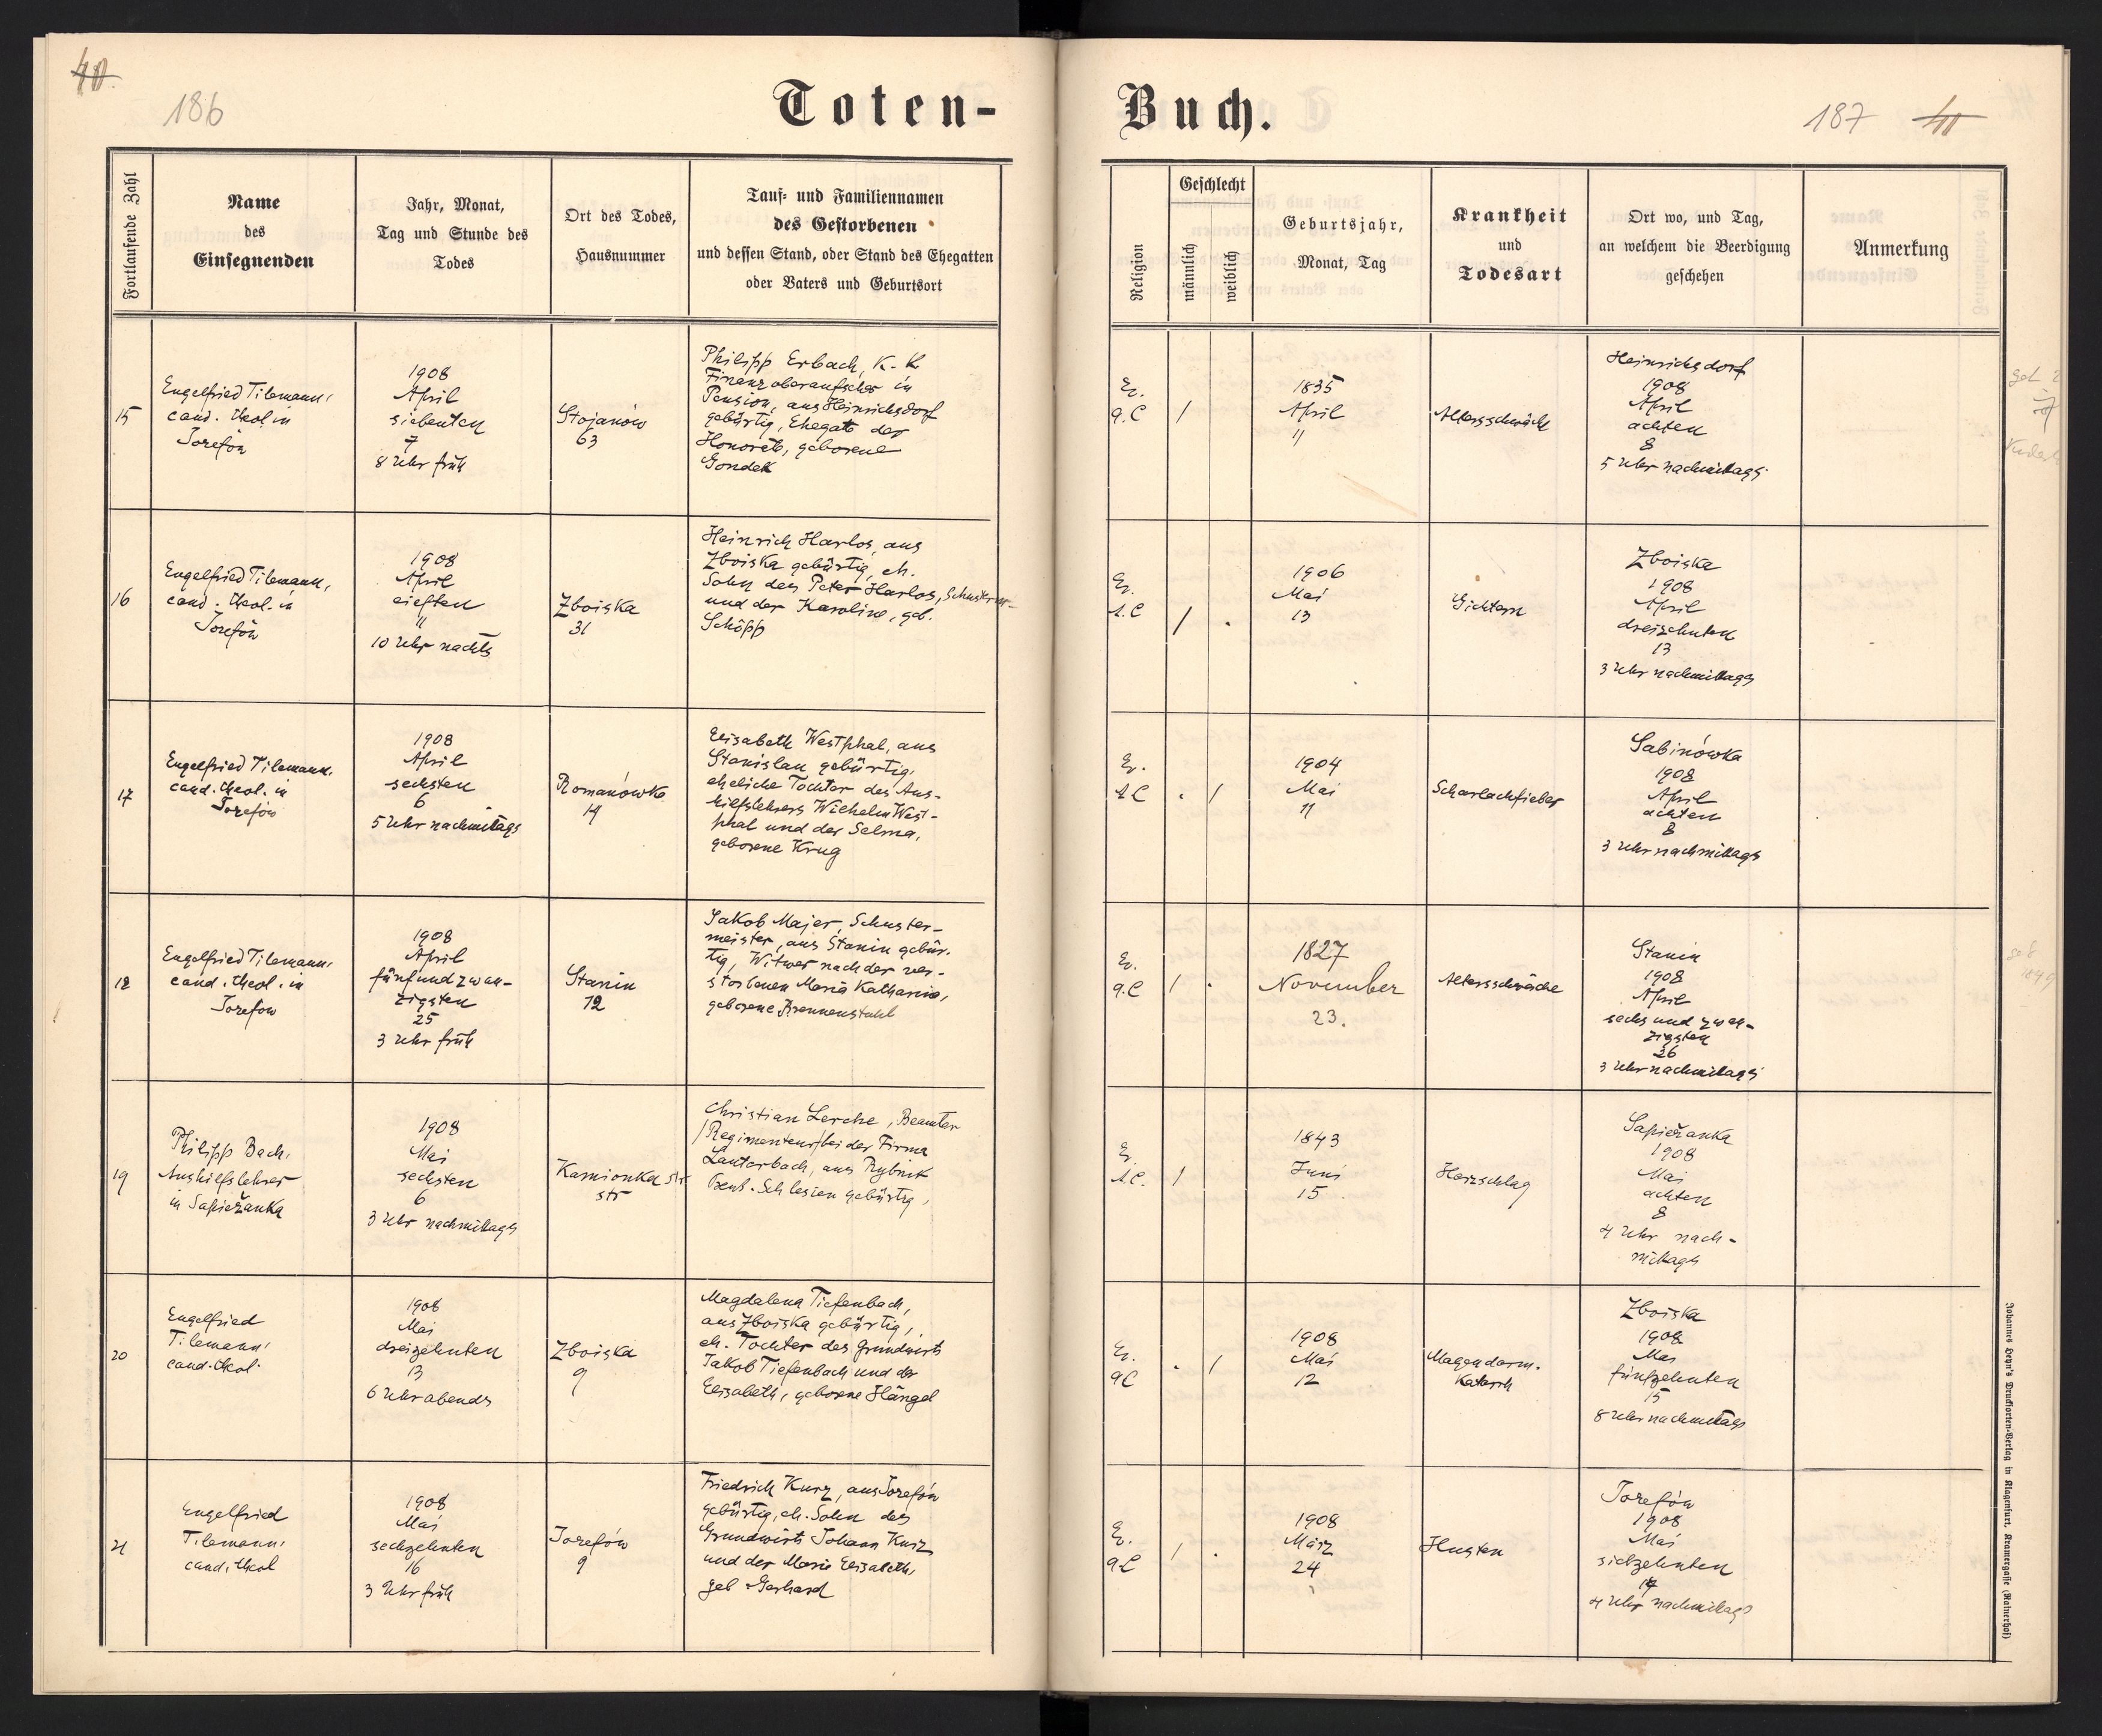 40.
186
Toten-
Fortlaufende Zahl
Name
des
Einsegnenden
Jahr, Monat,
Tag und Stunde des
Todes
Ort des Todes,
Hausnummer
Tauf- und Familiennamen
des Gestorbenen
und dessen Stand, oder Stand des Ehegatten
oder Vaters und Geburtsort
15
Engelfried Tilemann,
cand. theol in
Josefów
1908
April
siebenten
7
8 Uhr früh
Stojanów
63
Philipp Erbach, K. K
Finanzoberaufseher in
Pension, aus Heinrichsdorf
gebürtig, Ehegate der
Honorate, geborene
Gondek
16
Engelfried Tilemann,
cand. theol. in
Josefów
1908
April
eleften
11
10 Uhr nachts
Zboiska
31
Heinrich Harlos, aus
Zboiska gebürtig, eh.
Sohn des Peter Harlos, Schusters
und der Karoline, geb.
Schöpp
17
Engelfried Tilemann,
cand. theol. in
Josefów
1908
April
sechsten
6
5 Uhr nachmitags
Romanówka
14
Elisabeth Westphal, aus
Stanislau gebürtig,
eheliche Tochter des Aus-
hilfslehrers Wilhelm West-
phal und der Selma,
geborene Krug
18
Engelfried Tilemann,
cand. theol. in
Josefow
1908
April
fünfundzwan-
zigsten
25
3 Uhr früh
Stanin
12
Jakob Majer, Schuster-
meister, aus Stanin gebür-
tig, Witwer nach der ver-
storbenen Maria Katharina,
geborene Brennenstuhl
19
Philipp Bach,
Aushilfslehrer
in Sapieżanka
1908
Mai
sechsten
6
3 Uhr nachmittags
Kamionka str
str
Christian Lerche, Beamter
/Regimenteur/ bei der Firma
Lauterbach, aus Rybnik
Preuß. Schlesien gebürtig,
20
Engelfried
Tilemann,
cand. theol.
1908
Mai
dreizehnten
13
6 Uhr abends
Zboiska
9
Magdalena Tiefenbach,
aus Zboiska gebürtig,
eh. Tochter des Grundwirts
Jakob Tiefenbach und der
Elisabeth, geborene Hängel
21
Engelfried
Tilemann,
cand. theol
1908
Mai
sechzehnten
16
3 Uhr früh
Josefów
9
Friedrich Kurz, aus Josefów
gebürtig, eh. Sohn des
Grundwirts Johann Kurz
und der Marie Elisabeth,
geb. Gerhard
Buch.
187
Religion
Geschlecht
männlich
weiblich
Geburtsjahr,
Monat, Tag
Krankheit
und
Todesart
Ort wo, und Tag,
an welchem die Beerdigung
geschehen
Anmerkung
Ev.
A.C
/
1835
April
11
Altersschwäche
Heinrichsdorf
1908
April
achten
8
5 Uhr nachmittags
Ev.
A.C
/ .
1906
Mai
13
Gichtern
Zboiska
1908
April
dreizehnten
13
3 Uhr nachmittags
Ev.
A.C
. /
1904
Mai
11
Scharlachfieber
Sabinówka
1908
April
achten
8
3 Uhr nachmittags
Ev.
A.C
/ .
1827
November
23.
Altersschwäche
Stanin
1908
April
sechs und zwan-
zigsten
26
3 Uhr nachmittags
Ev.
A.C.
/
1843
Juni
15
Herzschlag
Sapieżanka
1908
Mai
achten
8
4 Uhr nach-
mittags
Ev.
A.C
. /
1908
Mai
12
Magendarm-
Katarrh
Zboiska
1908
Mai
fünfzehnten
15
8 Uhr nachmitags
Ev.
A.C
/ .
1908
März
24
Husten
Josefów
1908
Mai
siebzehnten
17
4 Uhr nachmittags
Johannes Heyn's Drucksorten-Verlag in Klagenfurt, Kramergasse (Rainerhof)